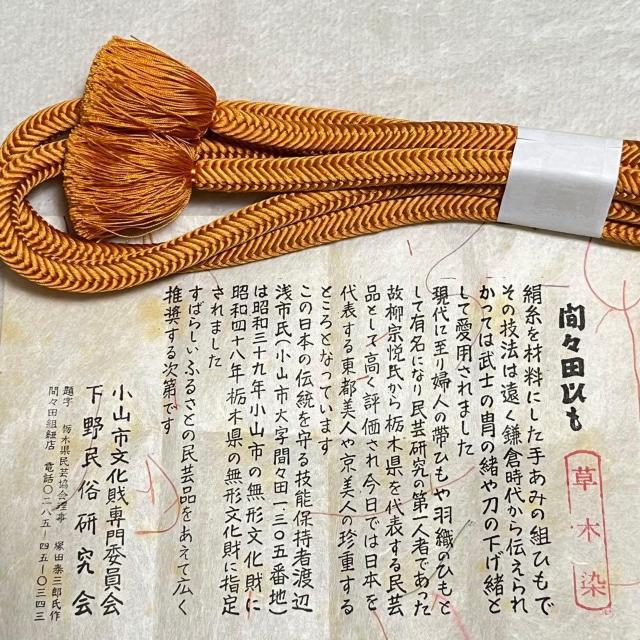 間々田ひも
草木染
絹糸を材料にした手あみの組ひもで
その技法は遠く鎌倉時代から伝えられ
かつては武士の冑の緒や刀の下げ緒と
して愛用されました
現代に至り婦人の帯ひもや羽織のひもと
して有名になり民芸研究の第一人者であった
故柳宗悦氏から栃木県を代表する民芸
品として高く評価され今日では日本を
代表する東都美人や京美人の珍重する
ところとなっています
この日本の伝統を守る技能保持者渡辺
浅市氏(小山市大字間々田一三〇五番地)
は昭和三十九年小山市の無形文化財に
昭和四十八年栃木県の無形文化財に指定
されました
すばらしいふるさとの民芸品をあえて広く
推奨する次第です
小山市文化財専門委員会
下野民俗研究会
題字 栃木県民芸協会理事 塚田泰三郎氏作
間々田組紐店 電話〇二八五-四五-〇三四三